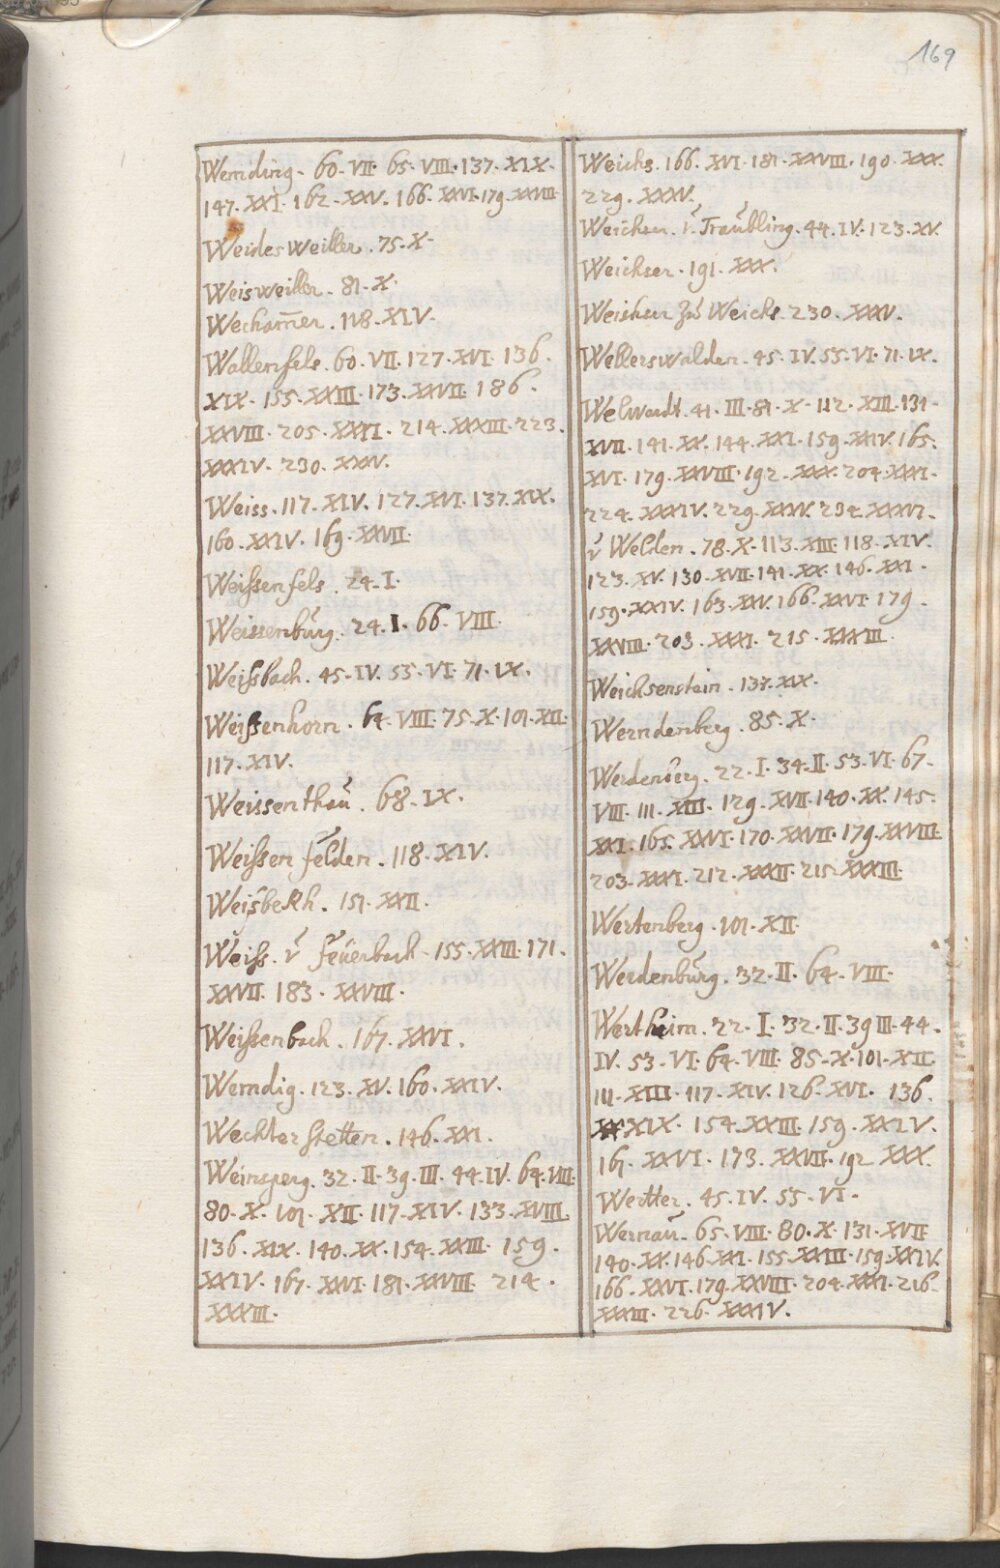 169
Wemding. 60. VII. 65. VIII. 137. XIX.
147. XXI. 162. XXV. 166. XXVI. 179. XXVIII
Weidesweiller. 75. X.
Weisweiller. 81. X.
Wechamer. 118. XIV.
Wallenfels. 60. VII. 127. XVI. 136.
XIX. 155. XXIII. 173. XXVII. 186.
XXVIII. 205. XXXI. 214. XXXIII. 223.
XXXIV. 230. XXXV.
Weiss. 117. XIV. 127. XVI. 137. XIX.
160. XXIV. 169. XXVII.
Weißenfels. 24. I.
Weissenburg. 24. I. 66. VIII.
Weißbach. 45. IV. 55. VI. 71. IX.
Weißenhorn. 64. VIII. 75. X. 101. XII.
117. XIV.
Weissenthau. 68. IX.
Weißen felden. 118. XIV.
Weisbekh. 151. XXII.
Weiß. v feuerbach. 155. XXIII. 171.
XXVII. 183. XXVIII.
Weißenbach. 167. XXVI.
Wemdig. 123. XV. 160. XXIV.
Wechterstetten. 146. XXI.
Weinsperg. 32. II. 39. III. 44. IV. 64. VIII.
80. X. 101. XII. 117. XIV. 133. XVIII.
136. XIX. 140. XX. 154. XXIII. 159.
XXIV. 167. XXVI. 181. XXVIII. 214.
XXXIII.
Weichs. 166. XVI. 181. XXVIII. 190. XXX.
229. XXXV.
Weichser. v. Traubling. 44. IV. 123. XV.
Weichser. 191. XXX.
Weichser zu Weichs. 230. XXXV.
Wellerswalden. 45. IV. 55. VI. 71. IX.
Welwardt. 41. III. 81. X. 112. XIII. 131.
XVII. 141. XX. 144. XXI. 159. XXIV. 165.
XVI. 179. XXVIII. 192. XXX. 204. XXXI.
224. XXXIV. 229. XXXV. 234. XXXVI.
v Welden. 78. X. 113. XIII. 118. XIV.
123. XV. 130. XVII. 141. XX. 146. XXI.
159. XXIV. 163. XXV. 166. XXVI. 179.
XXVIII. 203. XXXI. 215. XXXIII.
Weichsenstein. 137. XIX.
Werndenberg. 85. X.
Werdenberg. 22. I. 34. II. 53. VI. 67.
VIII. 111. XIII. 129. XVII. 140. XX. 145.
XXI. 165. XXVI. 170. XXVII. 179. XXVIII.
203. XXXI. 212. XXXII. 215. XXXIII.
Wertenberg. 101. XII.
Werdenburg. 32. II. 64. VIII.
Wertheim. 22. I. 32. II. 39 III. 44.
IV. 53. VI. 64. VIII. 85. X. 101. XII.
111. XIII. 117. XIV. 126. XVI. 136.
XIX. 154. XXIII. 159. XXIV.
167. XXVI. 173. XXVII. 192 XXX.
Wedtter. 45. IV. 55. VI.
Wernau. 65. VIII. 80. X. 131. XVII
140. XX. 146. XXI. 155. XXIII. 159. XXIV.
166. XXVI. 179. XXVIII. 204. XXXI. 216.
XXXIII. 226. XXXIV.